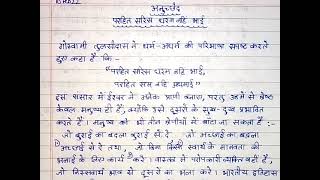 अनुच्छेद
परहित सरिस धरम नहिं भाई
गोस्वामी तुलसीदास ने धर्म-अधर्म की परिभाषा स्पष्ट करते
हुए कहा है कि -
"परहित सरिस धरम नहिं भाई,
परहित सम नहिं अधमाई"
इस संसार में ईश्वर ने अनेक प्राणी बनाए, परन्तु उनमें से श्रेष्ठ
केवल मनुष्य ही है, क्योंकि इसे दूसरों के सुख-दुख प्रभावित
करते हैं। मनुष्य को भी तीन श्रेणियों में बाँटा जा सकता है :-
जो बुराई का बदला बुराई से दे, जो अच्छाई का बदला
अच्छाई से दे तथा, जो बिना किसी स्वार्थ के मानवता की
भलाई के लिए कार्य करे। वास्तव में परोपकारी व्यक्ति वही है,
जो निस्स्वार्थ भाव से दूसरों का भला करे। भारतीय इतिहास